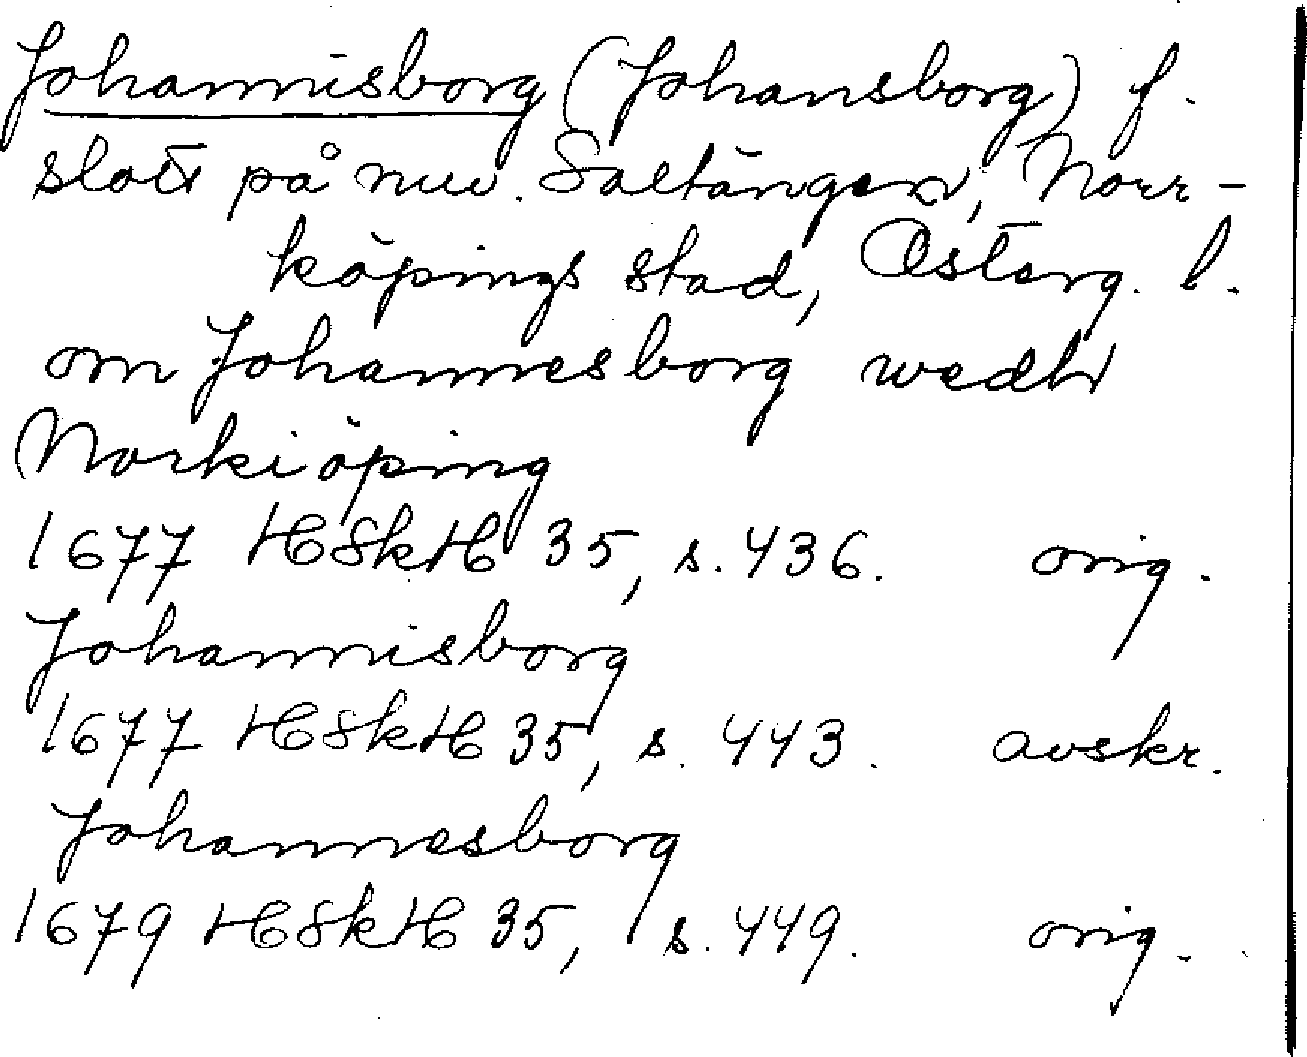 Johannisborg (Johansborg) f.
slott på nuv. Saltängen, Norr-
köpings stad, Österg. l.
om Johannesborg wedh
Norkiöping
1677 HSkH 35, s. 436. orig.
Johannisborg
1677 HSkH 35, s. 443. avskr.
Johannesborg
1679 HSkH 35, s. 449. orig.